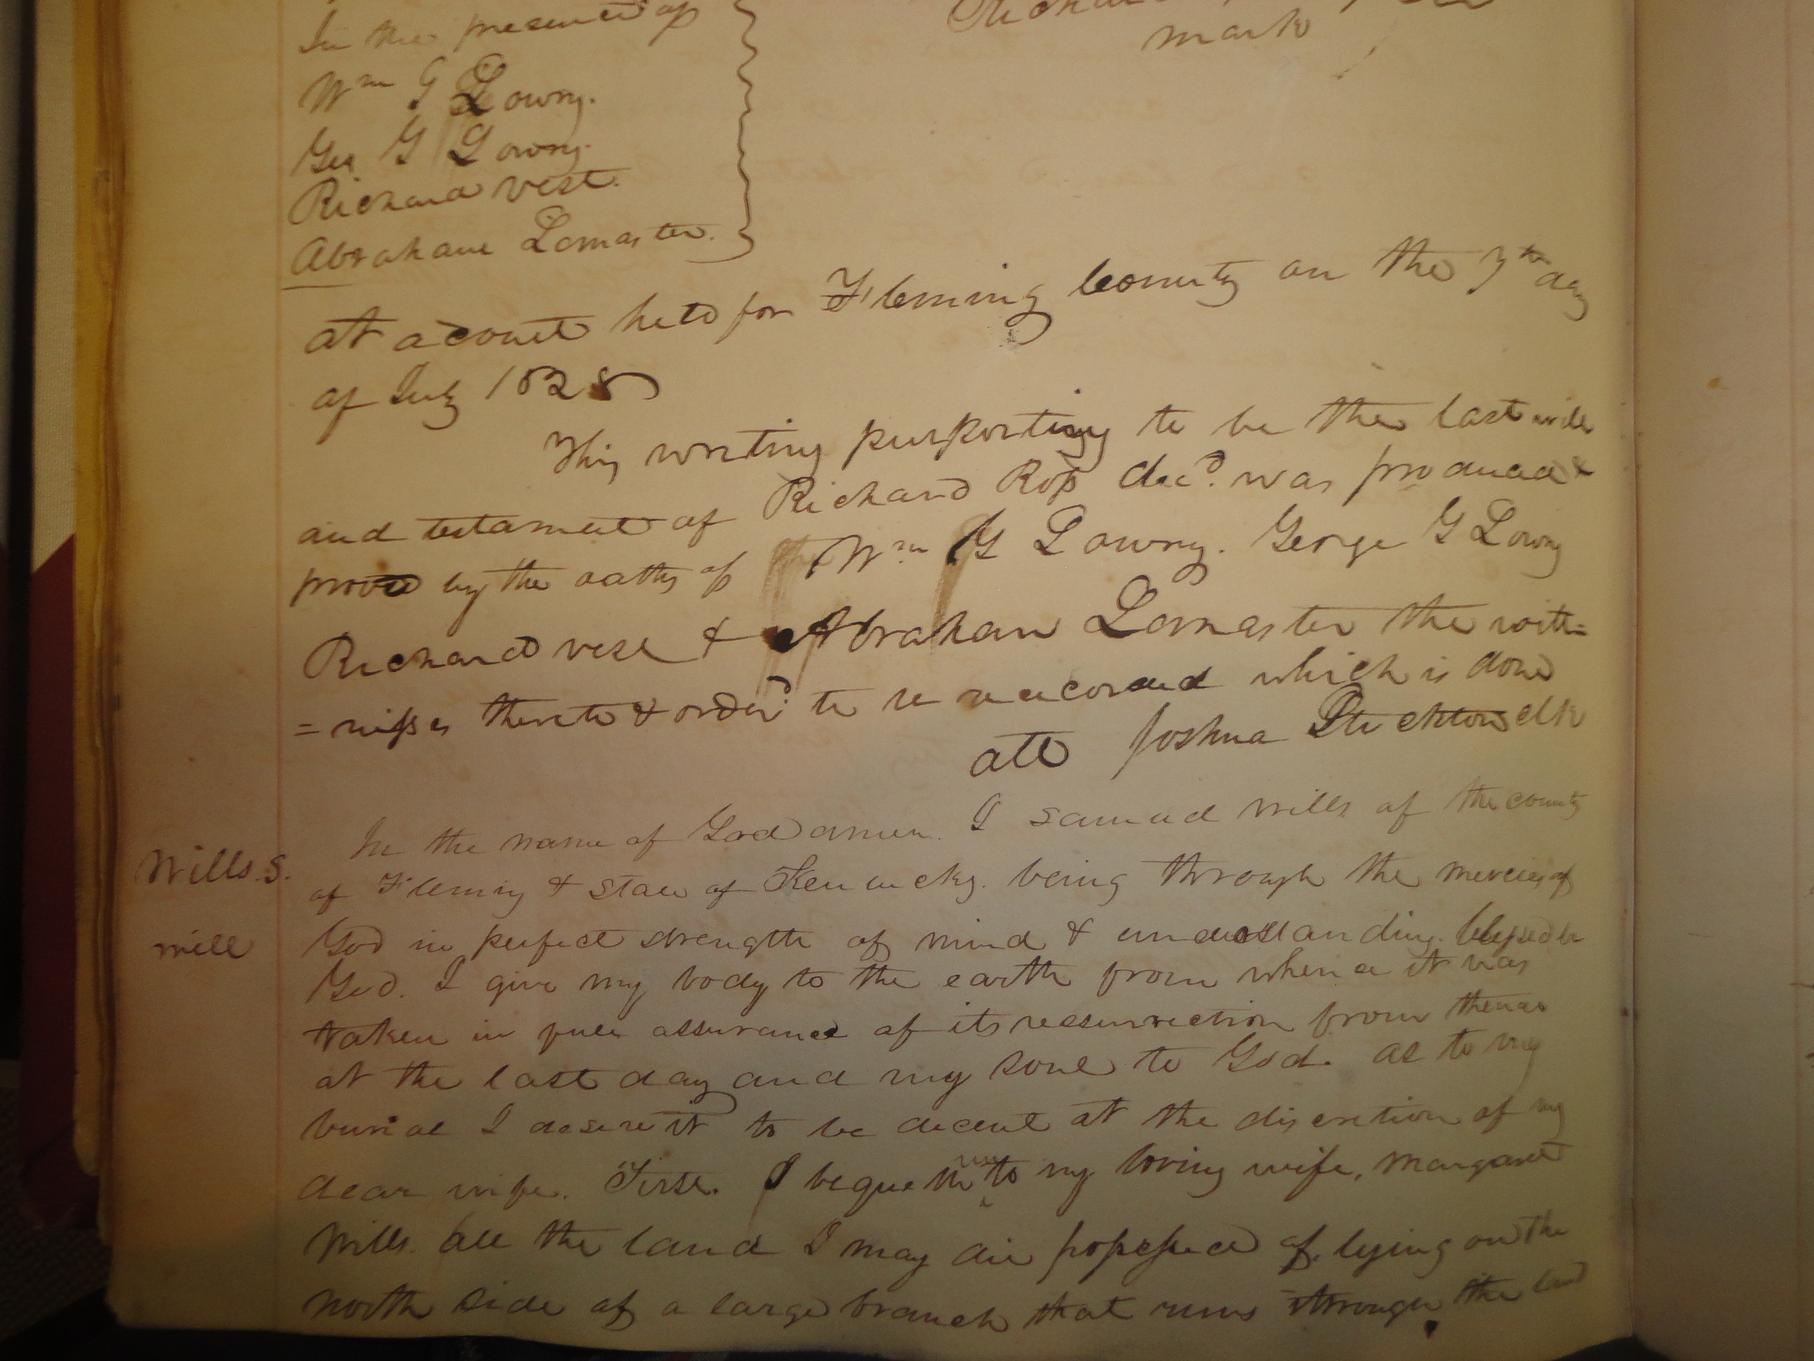 In the presence of
mark
Wm G Lowry.
Geo G Lowry.
Richard vest.
Abraham Lomaster.
at a court held for Fleming County on the 7th day
of July 1828
This writing purporting to be the last will
and testament of Richard Ross decd. was produced &
proved by the oaths of Wm G Lowry. George G Lowry
Richard vest & Abraham Lomaster the wit=
=nesses thereto & orderd to be recorded which is done
att Joshua Stockton clk
In the name of God amen. I Samuel Wills of the county
Wills. S.
of Fleming & State of Kentucky. being through the mercies of
will
God in perfect strength of mind & understanding. blessed be
God. I give my body to the earth from whence it was
taken in full assurance of its ressurrection from thence
at the last day and my soul to God. as to my
burial I desire it to be decent at the discretion of my
dear wife. First. I bequeath unto my loving wife, Margaret
Wills. all the land I may die possessed of. lying on the
north side of a large branch that runs through the land